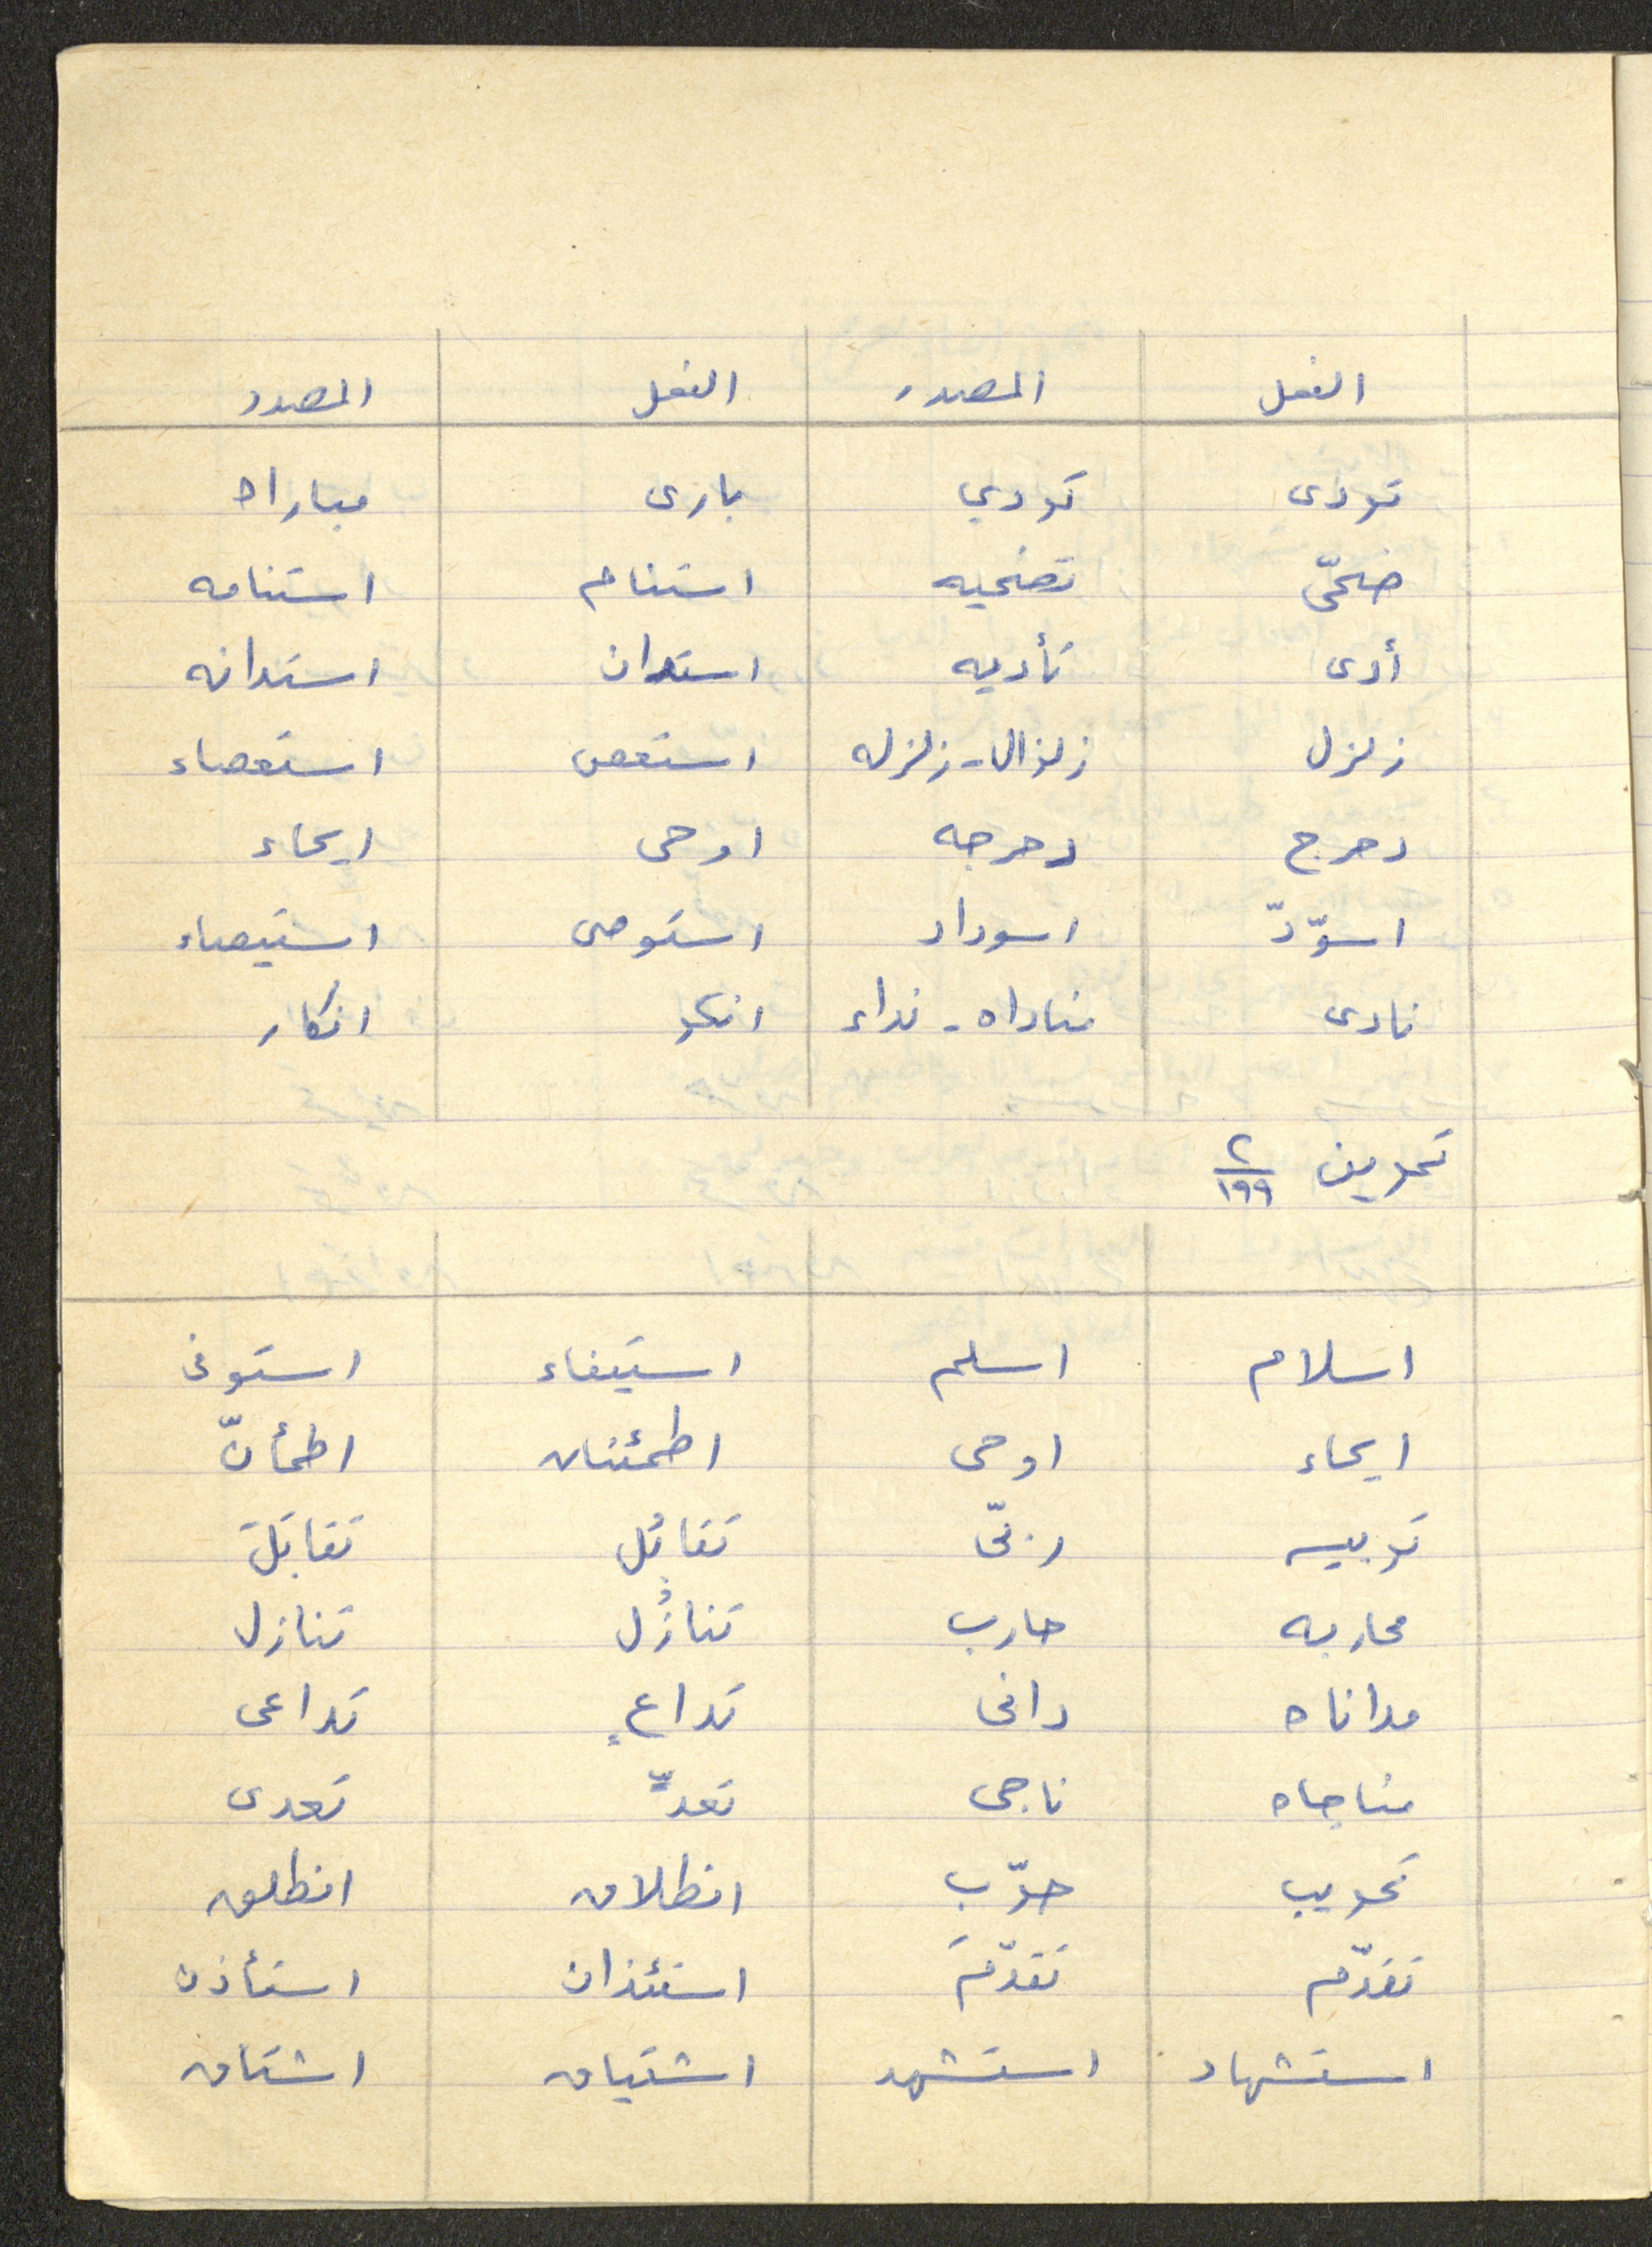 الفعل المصدر الفعل المصدر
تردى تردي بارى مباراه
ضحّى تضحيه استنام استنامه
أدى تأديه استدان استدانه
زلزل زلزال - زلزله استعصى استعصاء
دحرج دحرجه اوحى ايحاء
اسوّدّ اسوداد استوصى استيصاء
نادى مناداه - نداء انكر انكار
تمرين ٢/١٩٩
اسلام اسلم استيفاء استوفى
ايحاء اوحى اطمئنان اطمأنّ
تربيه ربّى تقاتُل تقاتَلَ
محاربه حارب تنازُل تنازل
مداناه دانى تداعٍ تداعى
مناجاه ناجى تعدٍّ تعدى
تخريب خرّب انطلاق انطلق
تقدّم تقدّمَ استئذان استأذن
استشهاد استشهد اشتياق اشتاق